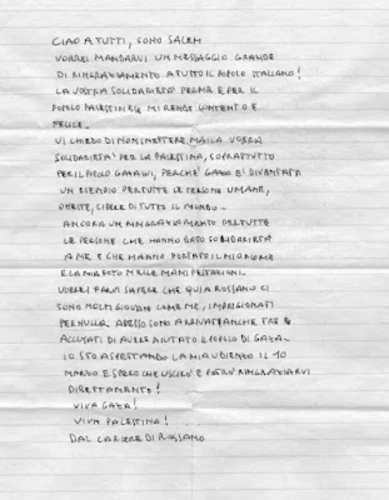 CIAO A TUTTI, SONO SALEM
VORREI MANDARVI UN MESSAGGIO GRANDE
DI RINGRAZIAMENTO A TUTTO IL POPOLO ITALIANO!
LA VOSTRA SOLIDARIETÀ PER ME E PER IL
POPOLO PALESTINESE MI RENDE CONTENTO E
FELICE.
VI CHIEDO DI NON SMETTERE MAI LA VOSTRA
SOLIDARIETÀ PER LA PALESTINA, SOPRATTUTTO
PER IL POPOLO GAZAWI, PERCHÉ GAZA È DIVENTATA
UN ESEMPIO PER TUTTE LE PERSONE UMANE,
ONESTE, LIBERE DI TUTTO IL MONDO.
ANCORA UN RINGRAZIAMENTO PER TUTTE
LE PERSONE CHE HANNO DATO SOLIDARIETÀ
A ME E CHE HANNO PORTATO IL MIO NOME
E LA MIA FOTO NELLE MANIFESTAZIONI.
VORREI FARVI SAPERE CHE QUI A ROSSANO CI
SONO MOLTI GIOVANI COME ME, IMPRIGIONATI
PER NULLA. ADESSO SONO ARRIVATI ANCHE TRE
ACCUSATI DI AVERE AIUTATO IL POPOLO DI GAZA.
IO STO ASPETTANDO LA MIA UDIENZA IL 10
MARZO E SPERO CHE USCIRÒ E POTRÒ RINGRAZIARVI
DIRETTAMENTE!
VIVA GAZA!
VIVA PALESTINA!
DAL CARCERE DI ROSSANO